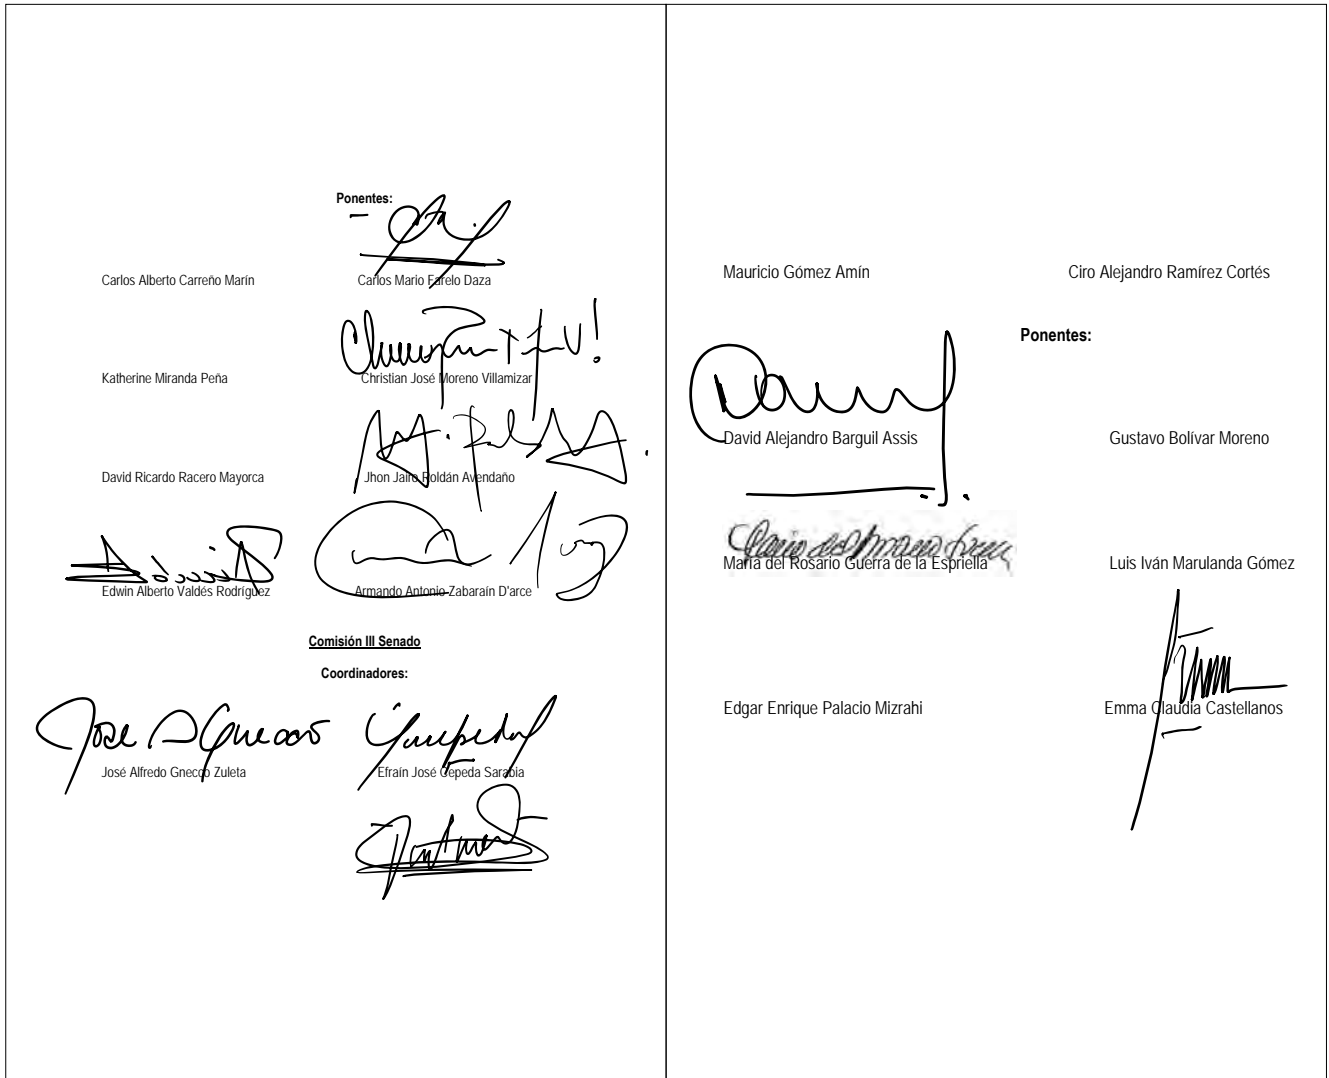 Ponentes:
Carlos Alberto Carreño Marín Carlos Mario Farelo Daza
Katherine Miranda Peña Christian José Moreno Villamizar
David Ricardo Racero Mayorca Jhon Jairo Roldán Avendaño
Edwin Alberto Valdés Rodríguez Armando Antonio Zabaraín D'arce
Comisión III Senado
Coordinadores:
José Alfredo Gnecco Zuleta Efraín José Cepeda Sarabia
Mauricio Gómez Amín Ciro Alejandro Ramírez Cortés
Ponentes:
David Alejandro Barguil Assis Gustavo Bolívar Moreno
María del Rosario Guerra de la Espriella Luis Iván Marulanda Gómez
Edgar Enrique Palacio Mizrahi Emma Claudia Castellanos